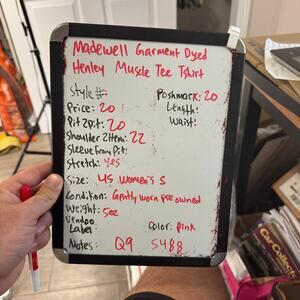 Madewell Garment Dyed
Henley Muscle Tee Tshirt
Style#:
Poshmark: 20
Price: 20
Length:
Pit 2 pit: 20
Waist:
Shoulder 2 Hem: 22
Sleeve From Pit:
Stretch: yes
Size: US Women's S
Condition: Gently worn pre owned
Weight: 5oz
Vendoo
Label:
Color: Pink
Notes: Q9 5488